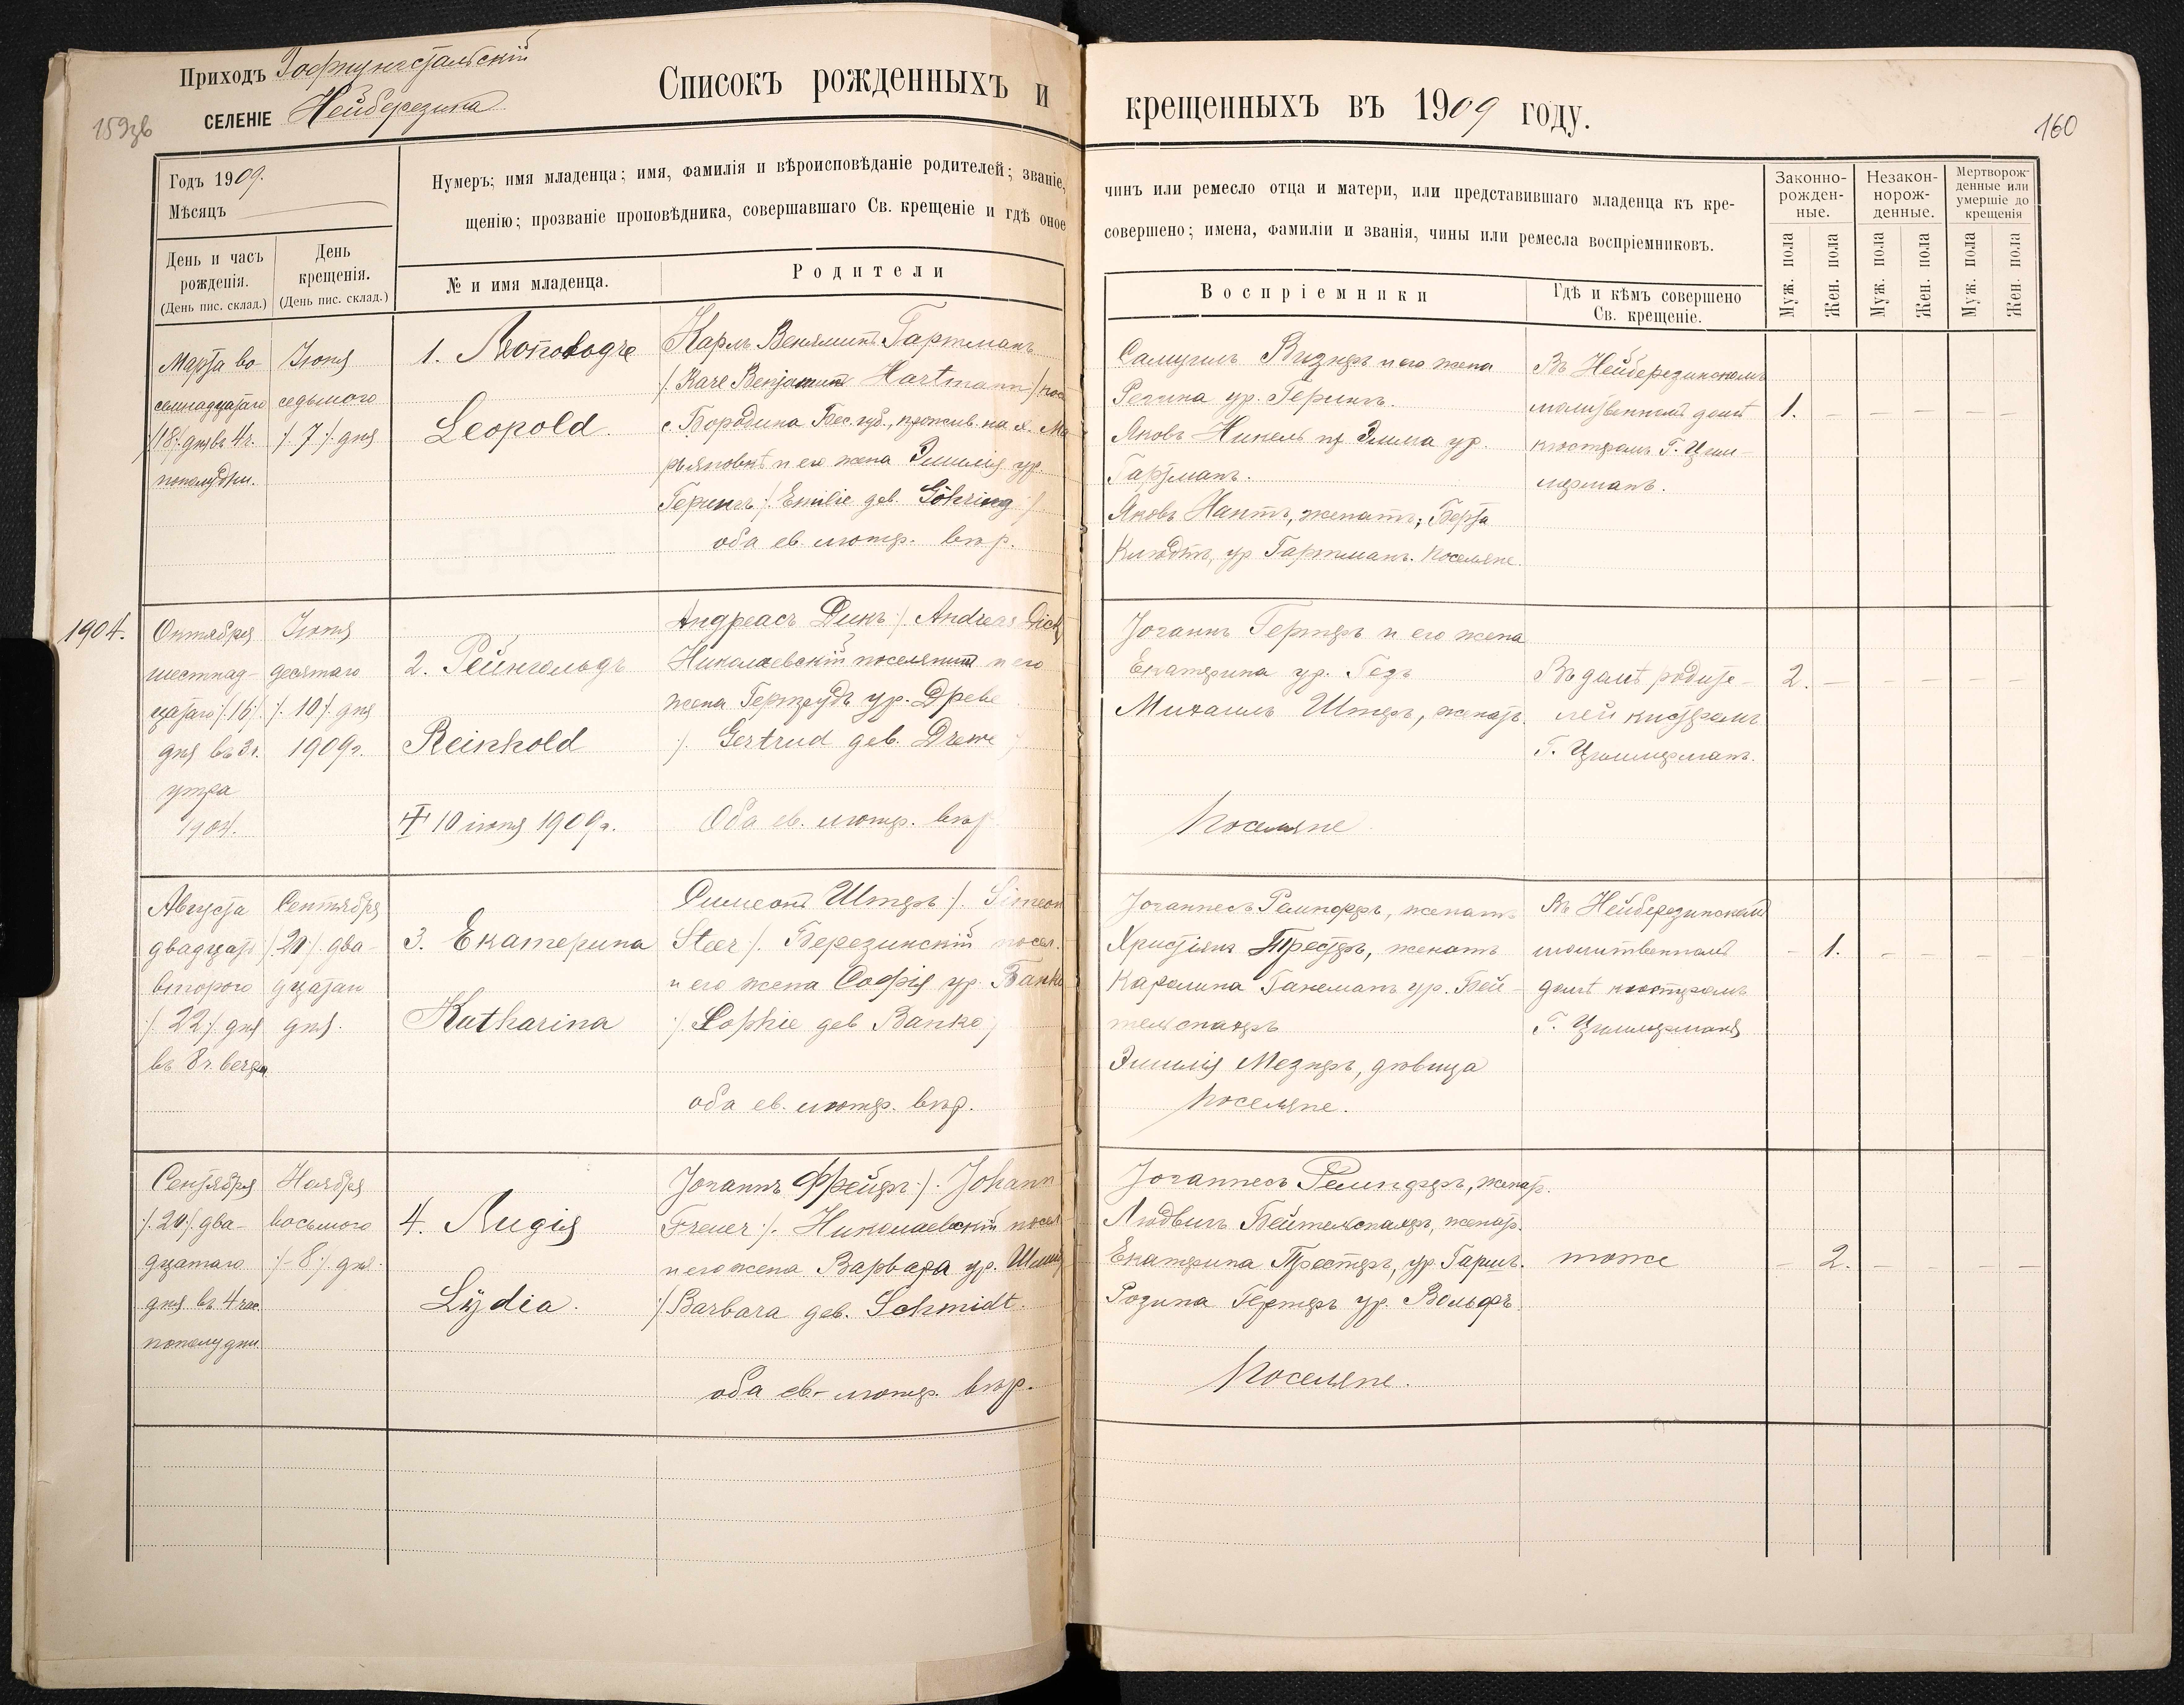 Приходъ Гофнунгстальскій
СЕЛЕНІЕ Нейберезина
Списокъ рожденныхъ и
159зв
Годъ 1909.
Мѣсяцъ
Нумеръ; имя младенца; имя, фамилія и вѣроисповѣданіе родителей; званіе,
щенію; прозваніе проповѣдника, совершавшаго Св. крещеніе и гдѣ оное
День и часъ рожденія.
(День пис. склад.)
День крещенія.
(День пис. склад.)
№ и имя младенца.
Родители
Марта во-
семнадцатаго
/:18:/ дня въ 4 ч.
пополудни.
Іюня
седьмого
/:7:/ дня
1. Леопольдъ
Leopold.
Карлъ Веняминъ Гартманъ
/: Karl Benjamin Hartmann :/ пос.
с. Бородина Бес. губ., прожив. на х. Ма-
рьяновкѣ и его жена Эмилія ур.
Герингъ /: Emilie geb. Göhring :/
оба ев. лютер. вѣр.
1904.
Октября
шестнад-
цатаго /:16:/
дня въ 3 ч.
утра
1904.
Іюня
десятаго
/: 10 :/ дня
1909 г.
2. Рейнгольдъ
Reinhold
10 іюня 1909 г.
Андреасъ Дикъ /: Andreas Dick
Николаевскій поселянинъ и его
жена Гертрудъ ур. Древе
/: Gertrud geb. Drewe :/
Оба ев. лютер. вѣр.
Августа
двадцать
второго
/: 22 :/ дня
въ 8 ч. вечера
Сентября
/: 20 :/ два-
дцатаго
дня.
3. Екатерина
Katharina
Симеонъ Штеръ /: Simeon
Steer :/. Березинскій посел.
и его жена Софія ур. Банко
/: Sophie geb. Banko :/
оба ев. лютер. вѣр.
Сентября
/: 20 :/ два-
дцатаго
дня въ 4 час.
пополудни.
Ноября
восьмого
/: 8 :/ дня.
4. Лидія
Lÿdia.
Іоганнъ Фрейеръ /: Johann
Freuer :/. Николаевскій посел.
и его жена Варвара ур. Шмид
/: Barbara geb. Schmidt.
оба ев.-лютер. вѣр.
крещенныхъ въ 1909 году.
160
чинъ или ремесло отца и матери, или представившаго младенца къ кре-
совершено; имена, фамиліи и званія, чины или ремесла воспріемниковъ.
Воспріемники
Гдѣ и кѣмъ совершено Св. крещеніе.
Законно-
рожден-
ные.
Незакон-
норож-
денные.
Мертворож-
денные или
умершіе до
крещенія
Муж. пола
Жен. пола
Муж. пола
Жен. пола
Муж. пола
Жен. пола
Самуилъ Визнеръ и его жена
Регина ур. Герингъ.
Яковъ Никель и Эмма ур.
Гартманъ.
Яковъ Нантъ, женатъ; Берта
Клюдтъ, ур. Гартманъ. Поселяне.
Въ Нейберезинскомъ
молитвенномъ домѣ
кюстеромъ Г. Цим-
мерманъ.
1. – – – – –
Іоганнъ Гертеръ и его жена
Екатерина ур. Гецъ
Михаилъ Штеръ, женатъ.
Поселяне
Въ домѣ родите-
лей кистеромъ
Г. Циммерманъ.
2. – – – – –
Іоганнесъ Ремпферъ, женатъ
Христіянъ Трестеръ, женатъ
Каролина Ганеманъ ур. Бей-
тельспахеръ
Эмилія Мезнеръ, дѣвица
Поселяне.
Въ Нейберезинскомъ
молитвенномъ
домѣ кюстеромъ
Г. Циммерманъ
– 1. – – – –
Іоганнесъ Ремпферъ, женат.
Людвигъ Бейтельспахеръ, женат.
Екатерина Трестеръ, ур. Гаришъ.
Розина Гертеръ ур. Вольфъ.
Поселяне.
тоже
– 2. – – – –